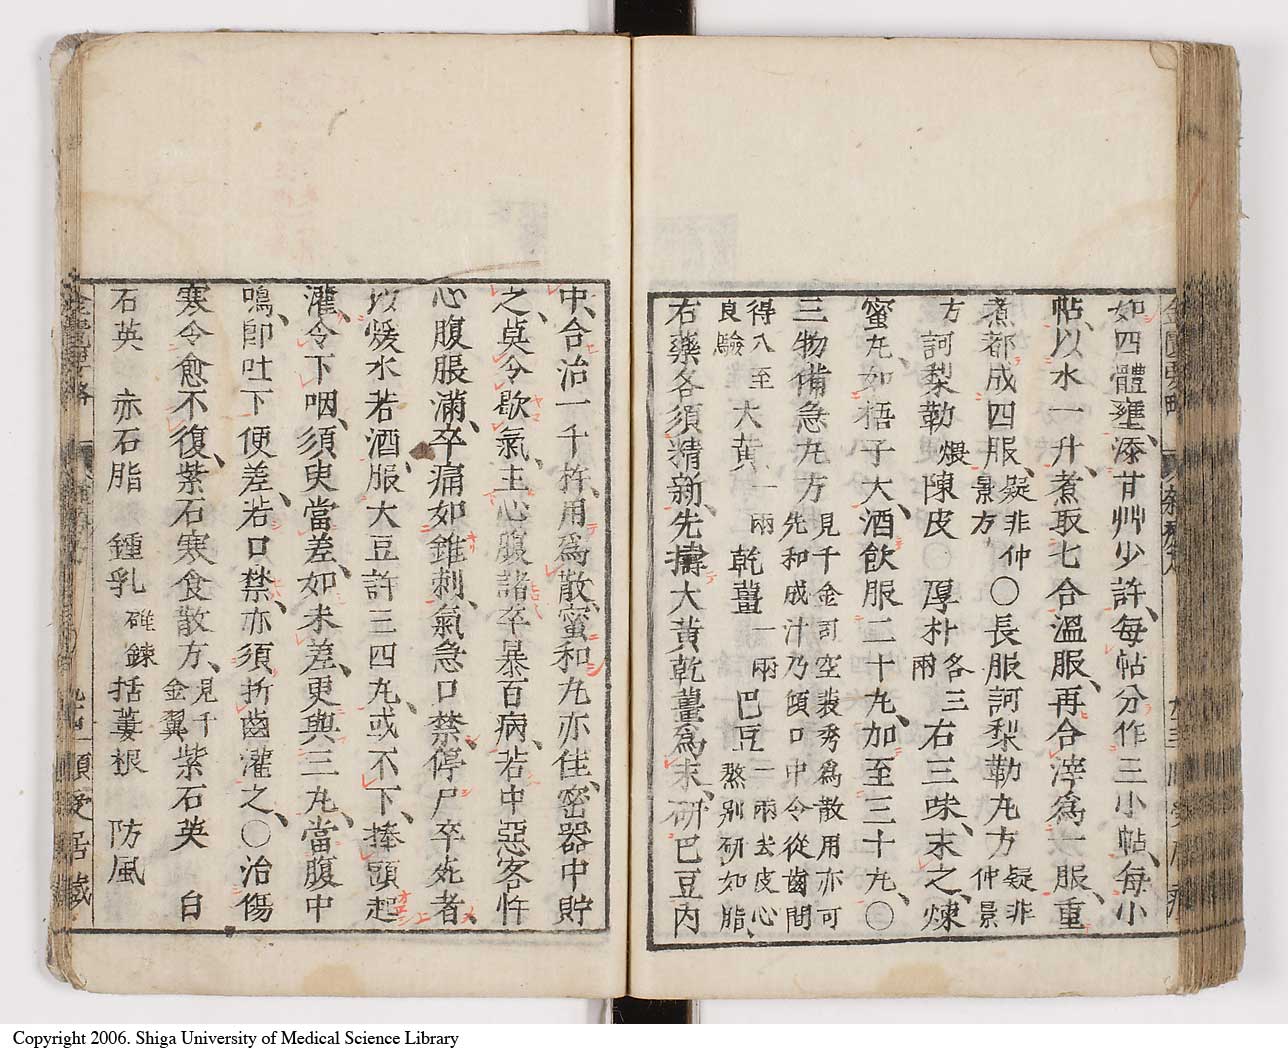 如四體壅添甘艸少許每帖分作三小帖每小
帖以水一升煮取七合溫服再合滓爲一服重
煮都成四服疑非仲景方○長服訶梨勒丸方疑非仲景
方 訶梨勒煨陳皮○厚朴各三兩右三味末之煉
蜜丸如梧子大酒飲服二十丸加至三十丸○
三物備急丸方見千金司空裴秀爲散用亦可先和成汁乃傾口中令從齒間
得入至良驗 大黃一兩 乾薑一兩 巴豆一兩去皮心熬別研如脂
右藥各須精新先擣大黃乾薑爲末研巴豆内
中合治一千杵用爲散蜜和丸亦佳密器中貯
之莫令歇氣主心腹諸卒暴百病若中惡客忤
心腹脹滿卒痛如錐刺氣急口禁停尸卒死者
以煖水若酒服大豆許三四丸或不下捧頭起
灌令下咽須臾當差如未差更與三丸當腹中
鳴卽吐下便差若口禁亦須折齒灌之○治傷
寒令愈不復紫石寒食散方見千金翼紫石英 白
石英 赤石脂 鍾乳碓鍊栝蔞根 防風
Copyright 2006. Shiga University of Medical Science Library